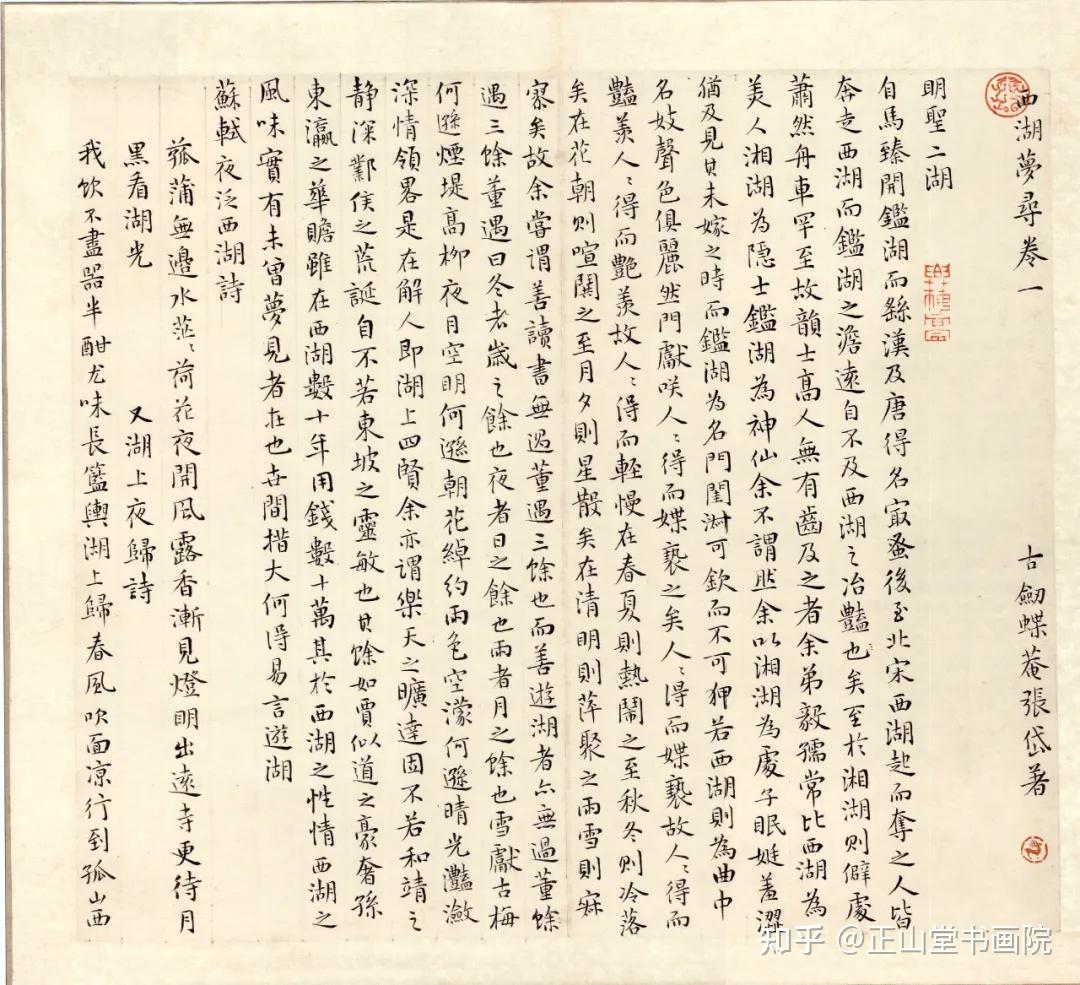 西湖夢尋卷一 古劒蝶菴張岱著
明聖二湖
自馬臻開鑑湖而繇漢及唐得名㝡蚤後至北宋西湖起而奪之人皆
奔走西湖而鑑湖之澹遠自不及西湖之冶豔也矣至於湘湖則僻處
蕭然舟車罕至故韻士高人無有齒及之者余弟毅孺常比西湖為
美人湘湖為隱士鑑湖為神仙余不謂然余以湘湖為處子眠娗羞澀
猶及見其未嫁之時而鑑湖為名門閨淑可欽而不可狎若西湖則為曲中
名妓聲色俱麗然門獻咲人〻得而媟褻之矣人〻得而媟褻故人〻得而
豔羨人〻得而艷羨故人〻得而輕慢在春夏則熱鬧之至秋冬則冷落
矣在花朝則喧鬨之至月夕則星散矣在清明則萍聚之雨雪則寂
寥矣故余嘗謂善讀書無過董遇三餘也而善遊湖者亦無過董餘
遇三餘董遇曰冬者歲之餘也夜者日之餘也雨者月之餘也雪獻古梅
何遜煙堤高柳夜月空明何遜朝花綽約雨色空濛何遜晴光灩瀲
深情領畧是在解人即湖上四賢余亦謂樂天之曠達固不若和靖之
靜深鄴侯之荒誕自不若東坡之靈敏也其餘如賈似道之豪奢孫
東瀛之華贍雖在西湖數十年用錢數十萬其於西湖之性情西湖之
風味實有未曾夢見者在也世間措大何得易言遊湖
蘇軾夜泛西湖詩
菰蒲無邊水茫〻荷花夜開風露香漸見燈明出遠寺更待月
黑看湖光 又湖上夜歸詩
我飲不盡器半酣尤味長籃輿湖上歸春風吹面涼行到孤山西
知乎 @正山堂书画院